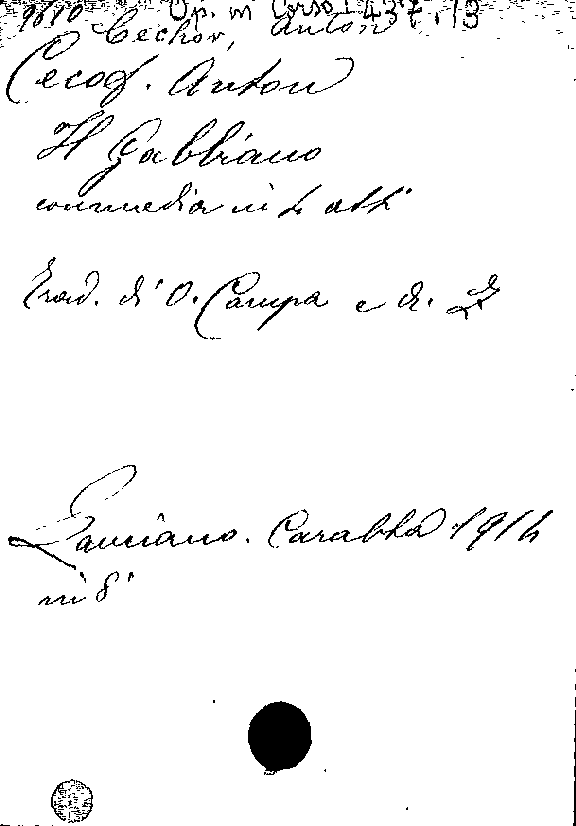 Op. in Corso I 437.13
Cechov, Anton
Cecof. Anton
Il Gabbiano
commedia in 4 atti
Trad. di O. Campa e di.
Lanciano. Carabba 1914
in 8°